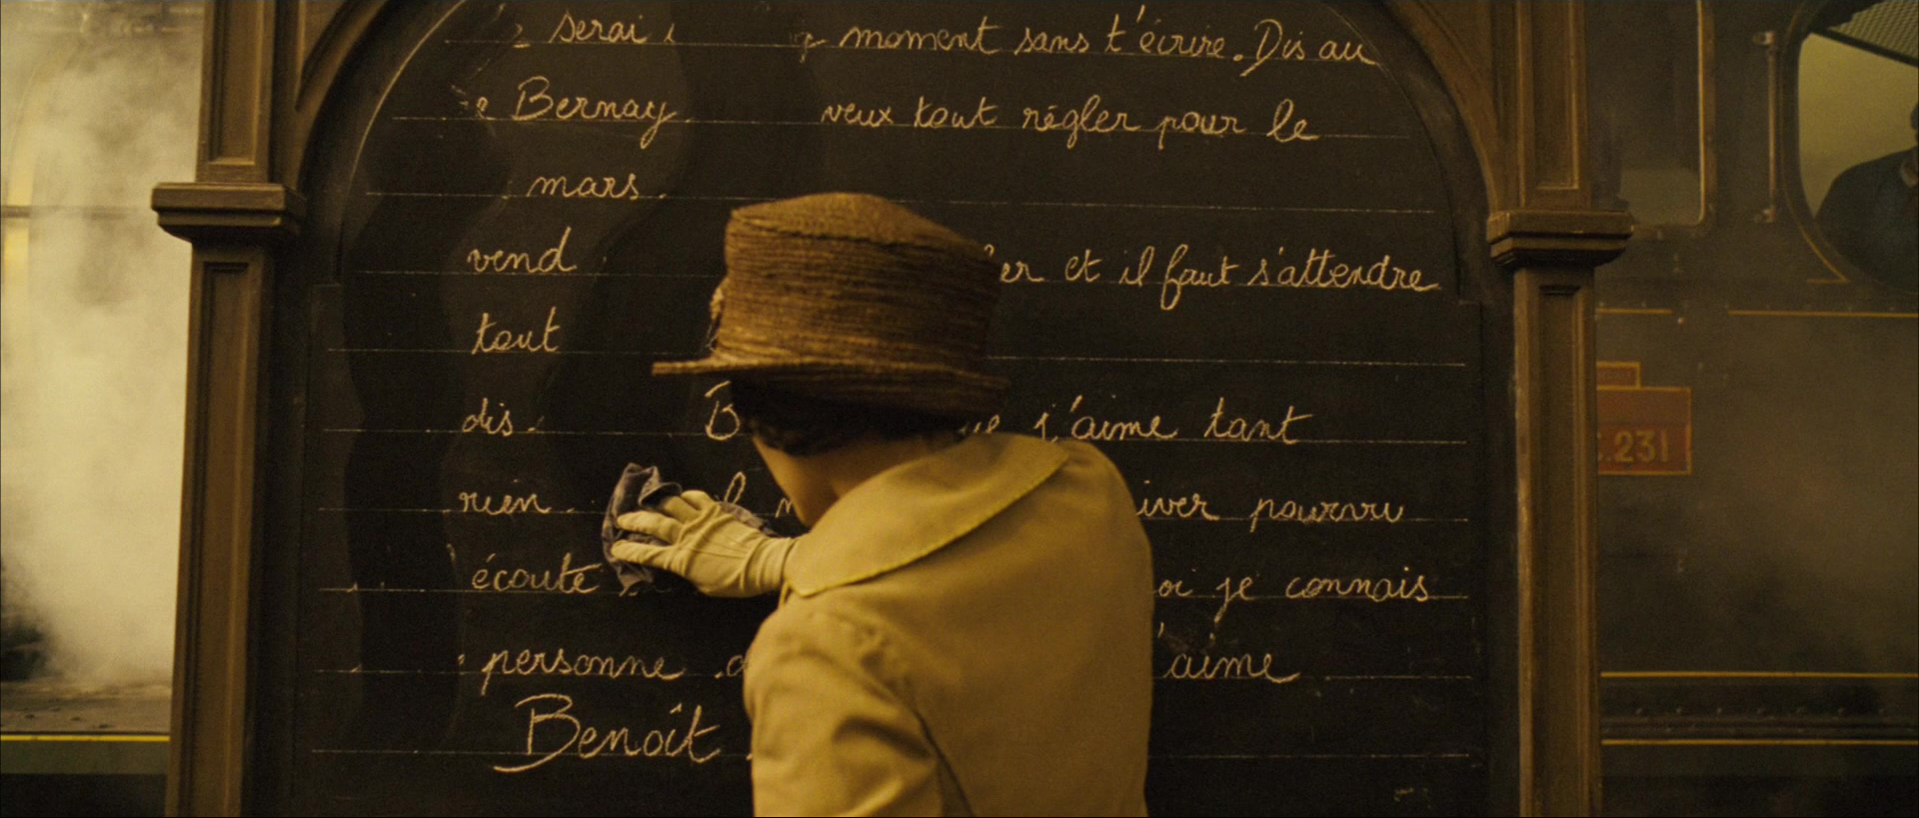 serai moment sans t'écrire. Dis au
Bernay veux tout régler pour le
mars.
vend er et il faut s'attendre
tout
dis. j'aime tant
rien iver pourvu
écoute je connais
personne 'aime
Benoît
.231